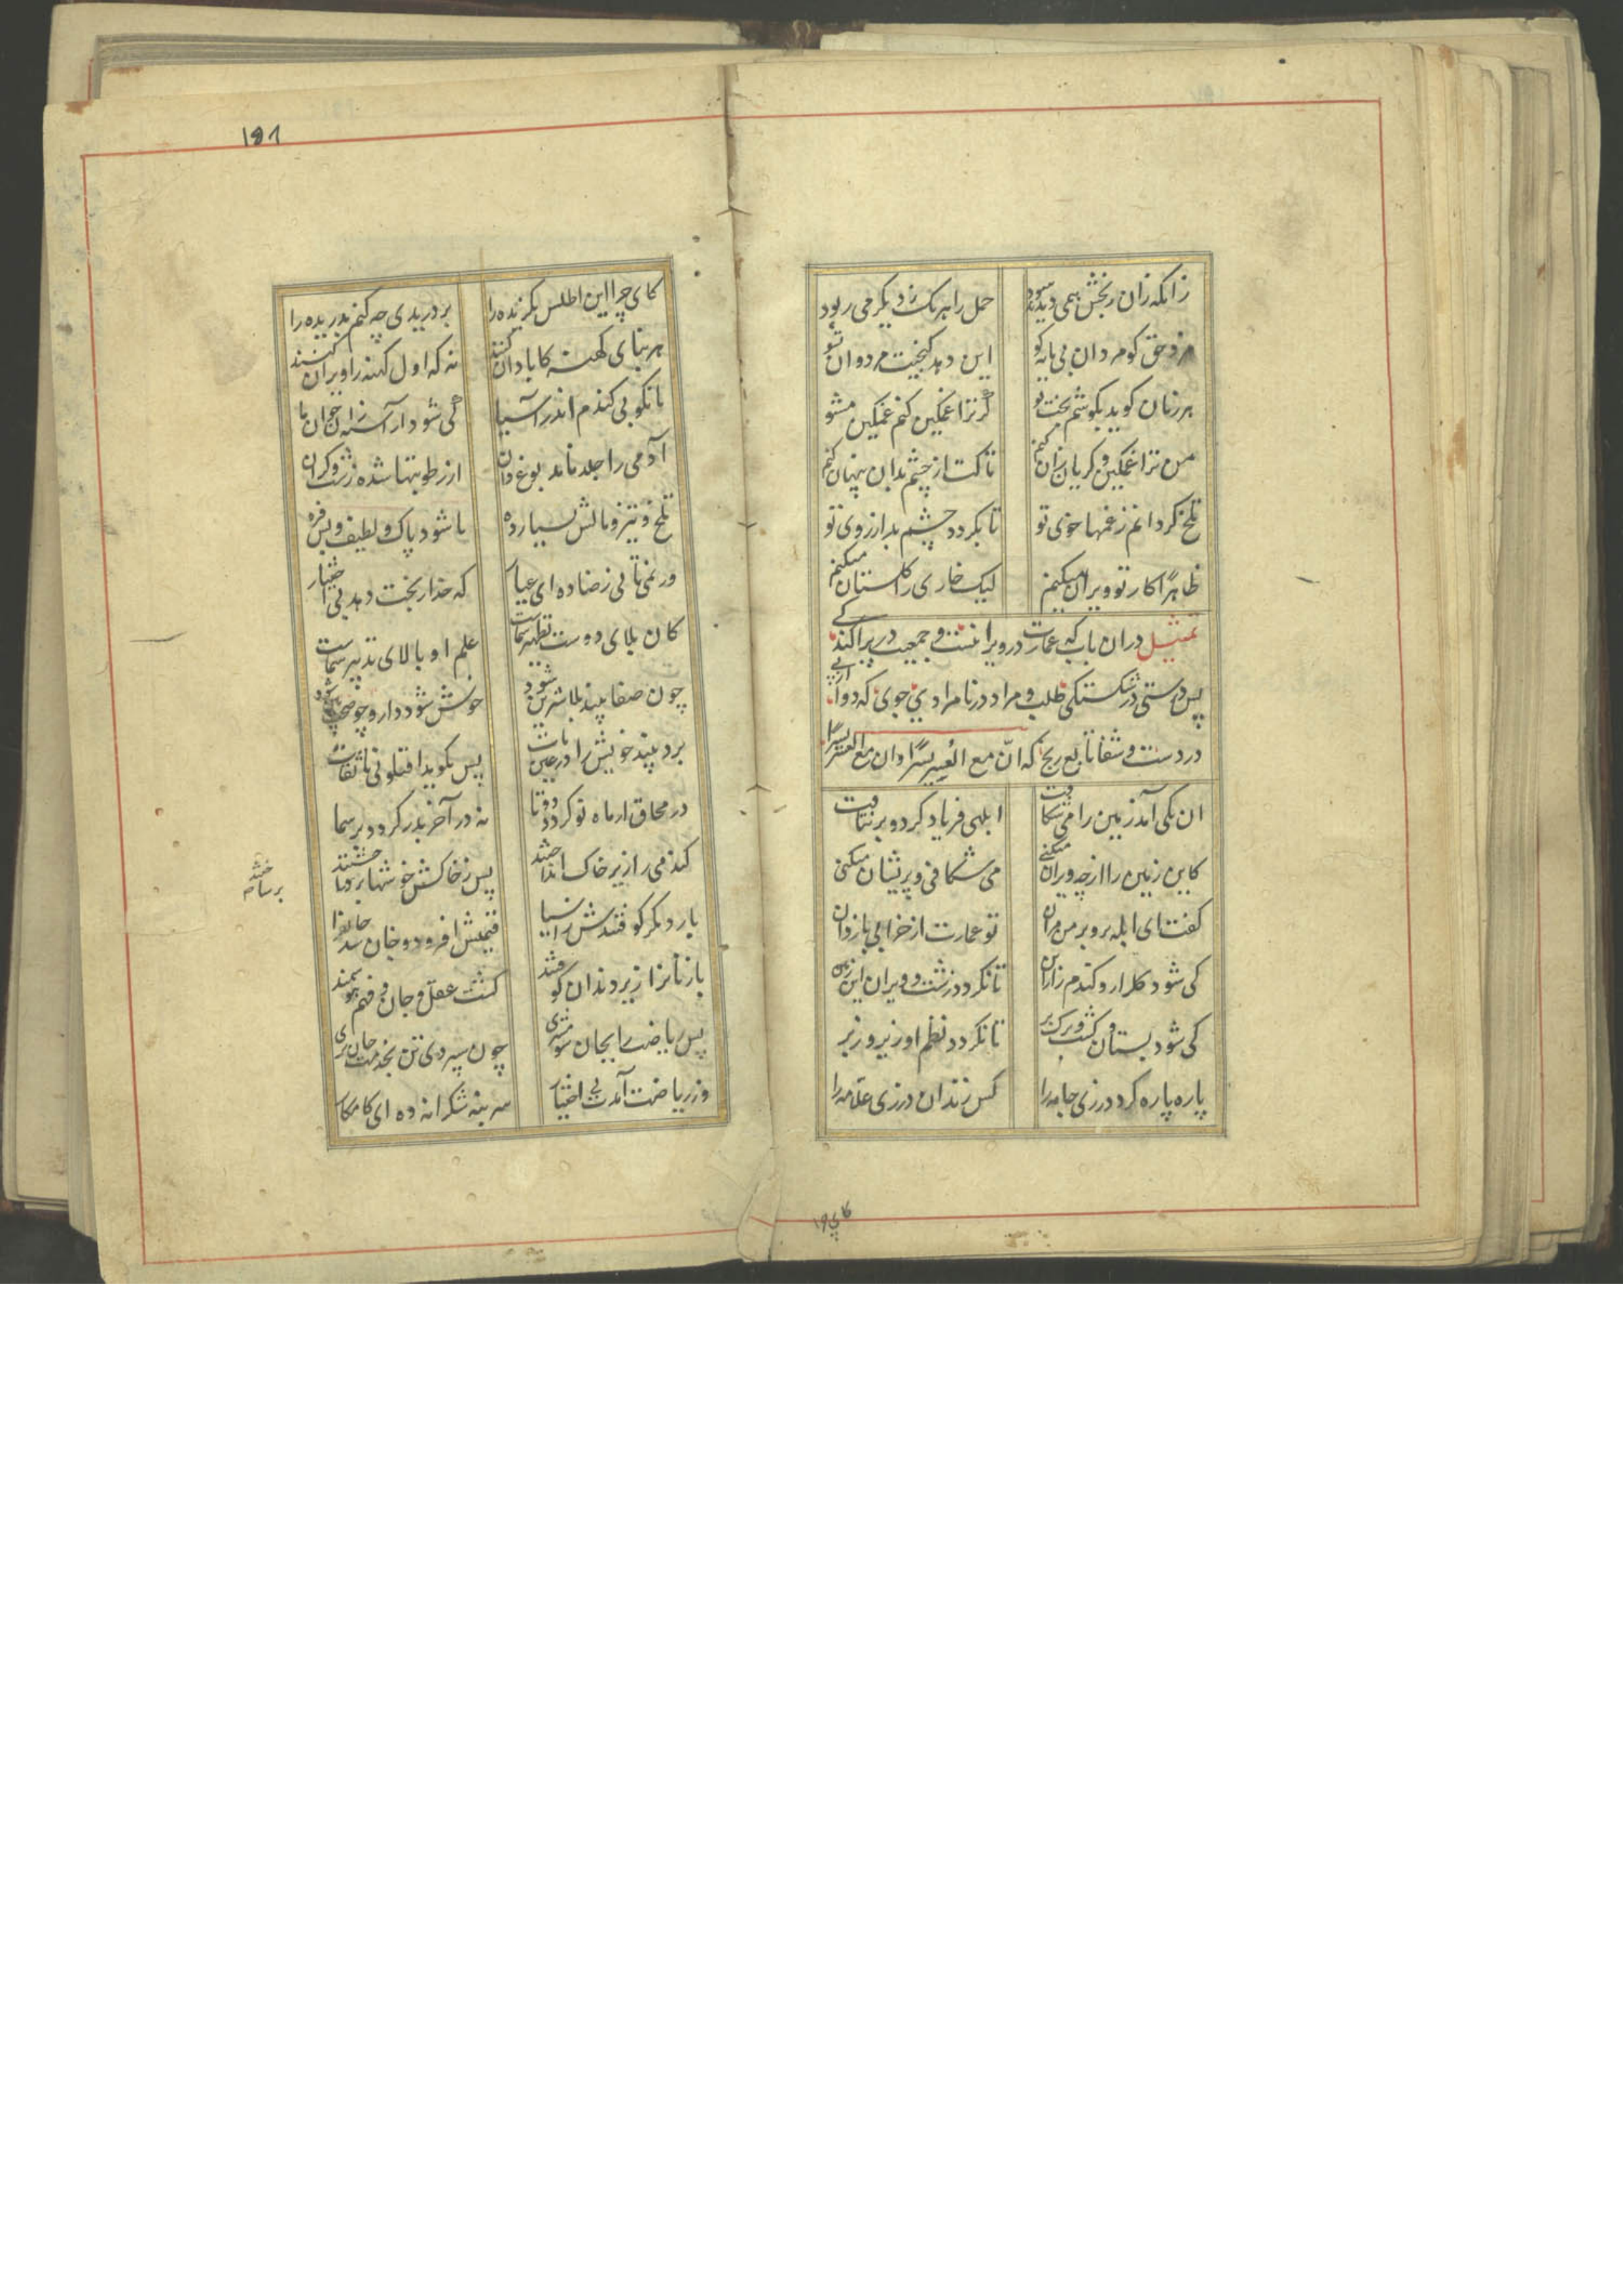 زانکه زان رنجش همی دیدند سود
حمل را هر یک ز دیگر می ربود
مزد حق کو مزد آن بی مایه کو
این دهد گنجیت مزد و آن تسو
هر زمان گوید بگوشم بخت نو
گر ترا غمگین کنم غمگین مشو
من ترا غمگین و گریان زان کنم
تا کت از چشم بدان پنهان کنم
تلخ گردانم ز غمها خوی تو
تا بگردد چشم بد از روی تو
ظاهرا کار تو ویران میکنم
لیک خاری را گلستان میکنم
تمثیل در آن باب که عمارت در ویرانیست و جمعیت در پراکندگی
پس درستی در شکستگی طلب و مراد در نامرادی جوی که دوا از پی
درد است و شفا تابع رنج که انّ مع العُسر یسرًا و ان مع العسر یسرًا
ان یکی آمد زمین را می شکافت
ابلهی فریاد کرد و بر نتافت
کاین زمین را از چه ویران میکنی
می شکافی و پریشان میکنی
گفت ای ابله برو بر من مران
تو عمارت از خرابی باز دان
کی شود گلزار و گندم زار این
تا نگردد زشت و ویران این زمین
کی شود بستان و کشت و برگ و بر
تا نگردد نظم او زیر و زبر
پاره پاره کرد درزی جامه را
کس زند آن درزی علامه را
کای چرا این اطلس بگزیده را
بر دریدی چه کنم بدریده را
هر بنای کهنه کابادان کنند
نه که اول کهنه را ویران کنند
تا نکوبی گندم اندر آسیا
کی شود آراسته زان خوان ما
آدمی را جلد نامد بوغ دان
از رطوبتها شده زشت و گران
تلخ و تیز و مالش بسیار ده
تا شود پاک و لطیف و پس فره
ور نمی تانی رضا ده ای عیار
که خدا رنجت دهد بی اختیار
کان بلای دوست تطهیر شماست
علم او بالای تدبیر شماست
چون صفا بیند بلا شیرین شود
خوش شود دارو چو صحت بین شود
برد بیند خویش را در عین مات
پس بگوید اقتلونی یا ثقات
در محاق ار ماه نو گردد دو تا
نه در آخر بدر گردد بر سما
گندمی را زیر خاک انداختند
پس ز خاکش خوشها بر ساختند
بر ساختند
بار دیگر کوفتندش ز آسیا
قیمتش افزود و نان شد جانفزا
باز نانرا زیر دندان کوفتند
گشت عقل و جان و فهم هوشمند
پس ریاضت را بجان شو مشتری
چون سپردی تن بخدمت جان بری
ور ریاضت آیدت بی اختیار
سر بنه شکرانه ده ای کامکار
کای